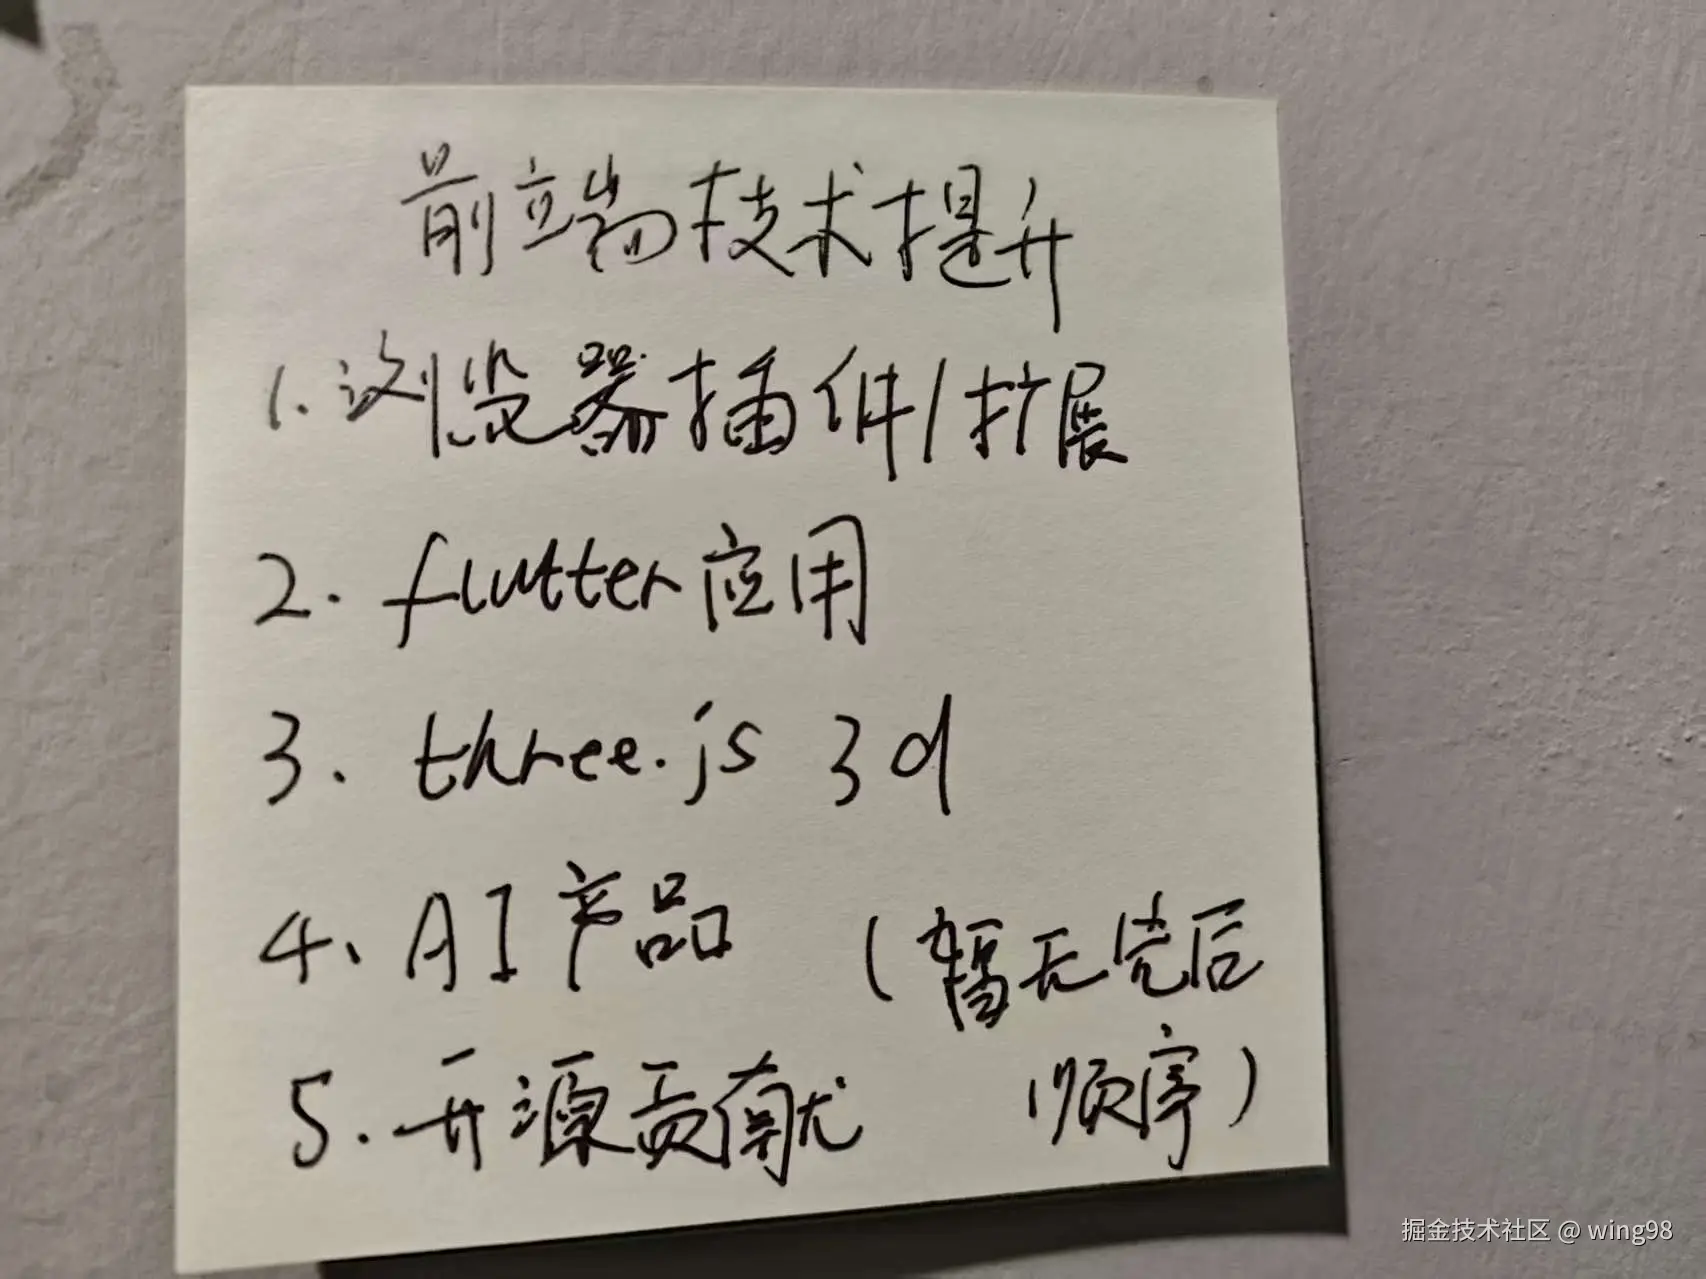 前端技术提升
1. 浏览器插件/扩展
2. flutter应用
3. three.js 3d
4、AI产品
(暂无先后
顺序)
5. 开源贡献
掘金技术社区 @ wing98